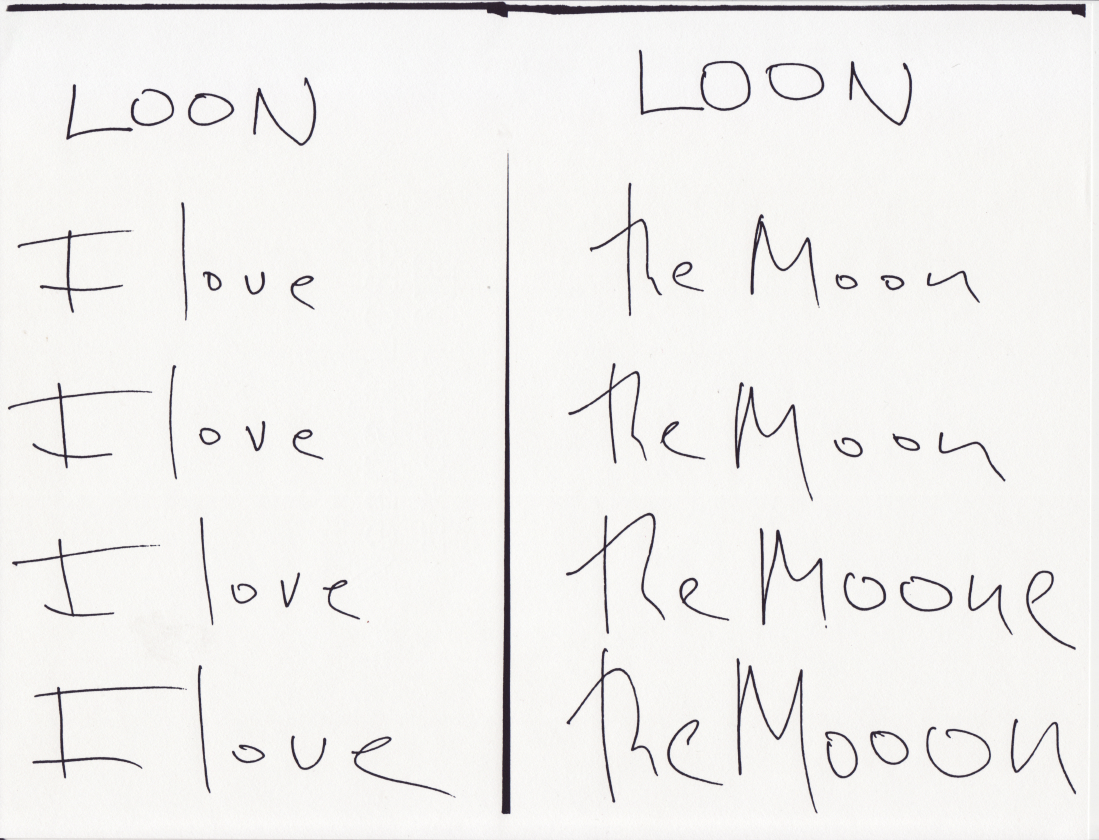 LOON
I love
I love
I love
I love
LOON
the Moon
the Moon
the Moone
the Mooon